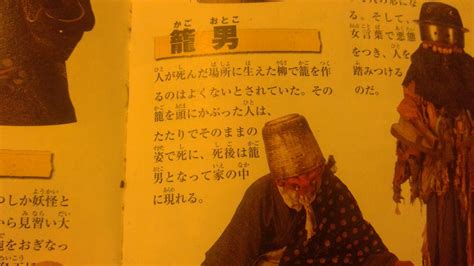 籠男
人が死んだ場所に生えた柳で籠を作
るのはよくないとされていた。その
籠を頭にかぶった人は、
たたりでそのままの
姿で死に、死後は籠
男となって家の中
に現れる。
る、そして、
女言葉で悪態
をつき、人を
踏みつける
のだ。
つしか妖怪と
から見習い大
をおぎなっ